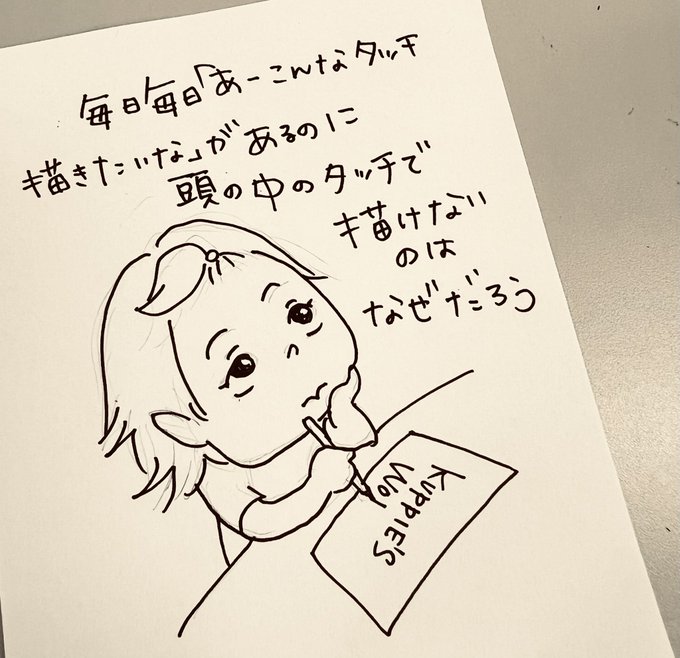 毎日毎日「あーこんなタッチ
描きたいな」があるのに
頭の中のタッチで
描けない
のは
なぜだろう
KUPPIE'S
Wo